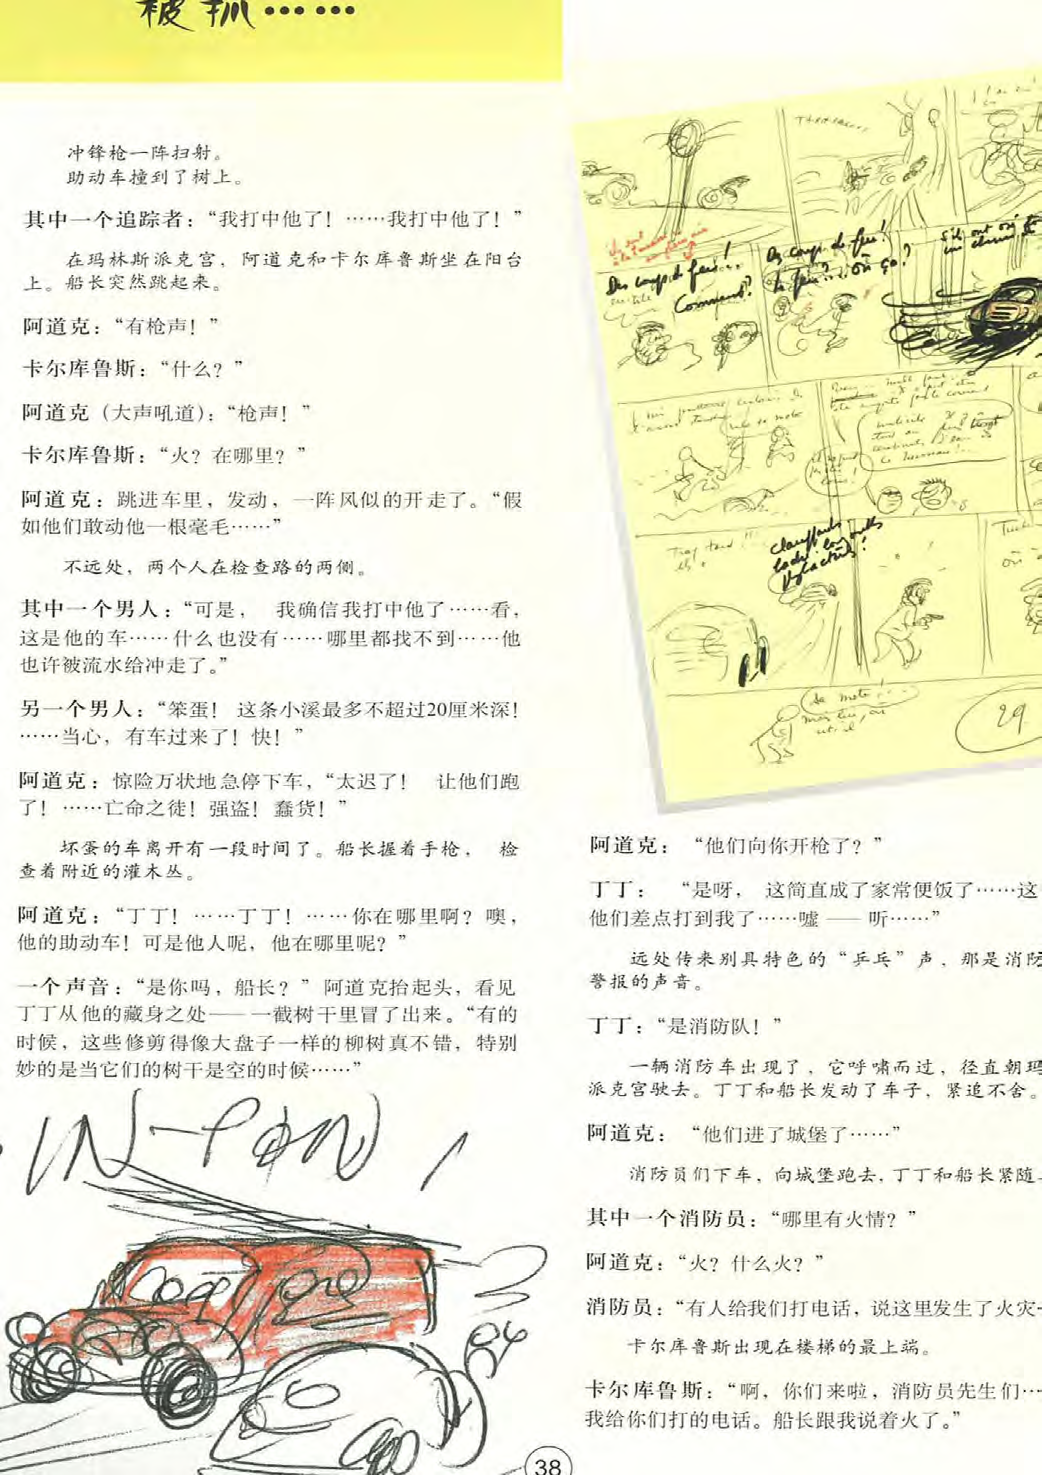 被抓……
冲锋枪一阵扫射。
助动车撞到了树上。
其中一个追踪者：“我打中他了！……我打中他了！”
在玛林斯派克宫，阿道克和卡尔库鲁斯坐在阳台
上。船长突然跳起来。
阿道克：“有枪声！”
卡尔库鲁斯：“什么？”
阿道克（大声吼道）：“枪声！”
卡尔库鲁斯：“火？在哪里？”
阿道克：跳进车里，发动，一阵风似的开走了。“假
如他们敢动他一根毫毛……”
不远处，两个人在检查路的两侧。
其中一个男人：“可是， 我确信我打中他了……看，
这是他的车……什么也没有……哪里都找不到……他
也许被流水给冲走了。”
另一个男人：“笨蛋！ 这条小溪最多不超过20厘米深！
……当心，有车过来了！快！”
阿道克：惊险万状地急停下车，“太迟了！ 让他们跑
了！……亡命之徒！强盗！蠢货！”
坏蛋的车离开有一段时间了。船长握着手枪， 检
查着附近的灌木丛。
阿道克：“丁丁！……丁丁！……你在哪里啊？噢，
他的助动车！可是他人呢，他在哪里呢？”
一个声音：“是你吗，船长？”阿道克抬起头，看见
丁丁从他的藏身之处——一截树干里冒了出来。“有的
时候，这些修剪得像大盘子一样的柳树真不错，特别
妙的是当它们的树干是空的时候……”
Des coups de feu!
Comment?
Des coups de feu!
Le feu?... Où ça?
29
阿道克： “他们向你开枪了？”
丁丁： “是呀， 这简直成了家常便饭了……这
他们差点打到我了……嘘——听……”
远处传来别具特色的“乒乓”声，那是消防
警报的声音。
丁丁：“是消防队！”
一辆消防车出现了，它呼啸而过，径直朝玛
派克宫驶去。丁丁和船长发动了车子，紧追不舍。
阿道克： “他们进了城堡了……”
消防员们下车，向城堡跑去，丁丁和船长紧随
其中一个消防员：“哪里有火情？”
阿道克：“火？什么火？”
消防员：“有人给我们打电话，说这里发生了火灾
卡尔库鲁斯出现在楼梯的最上端。
卡尔库鲁斯：“啊，你们来啦，消防员先生们…
我给你们打的电话。船长跟我说着火了。”
38